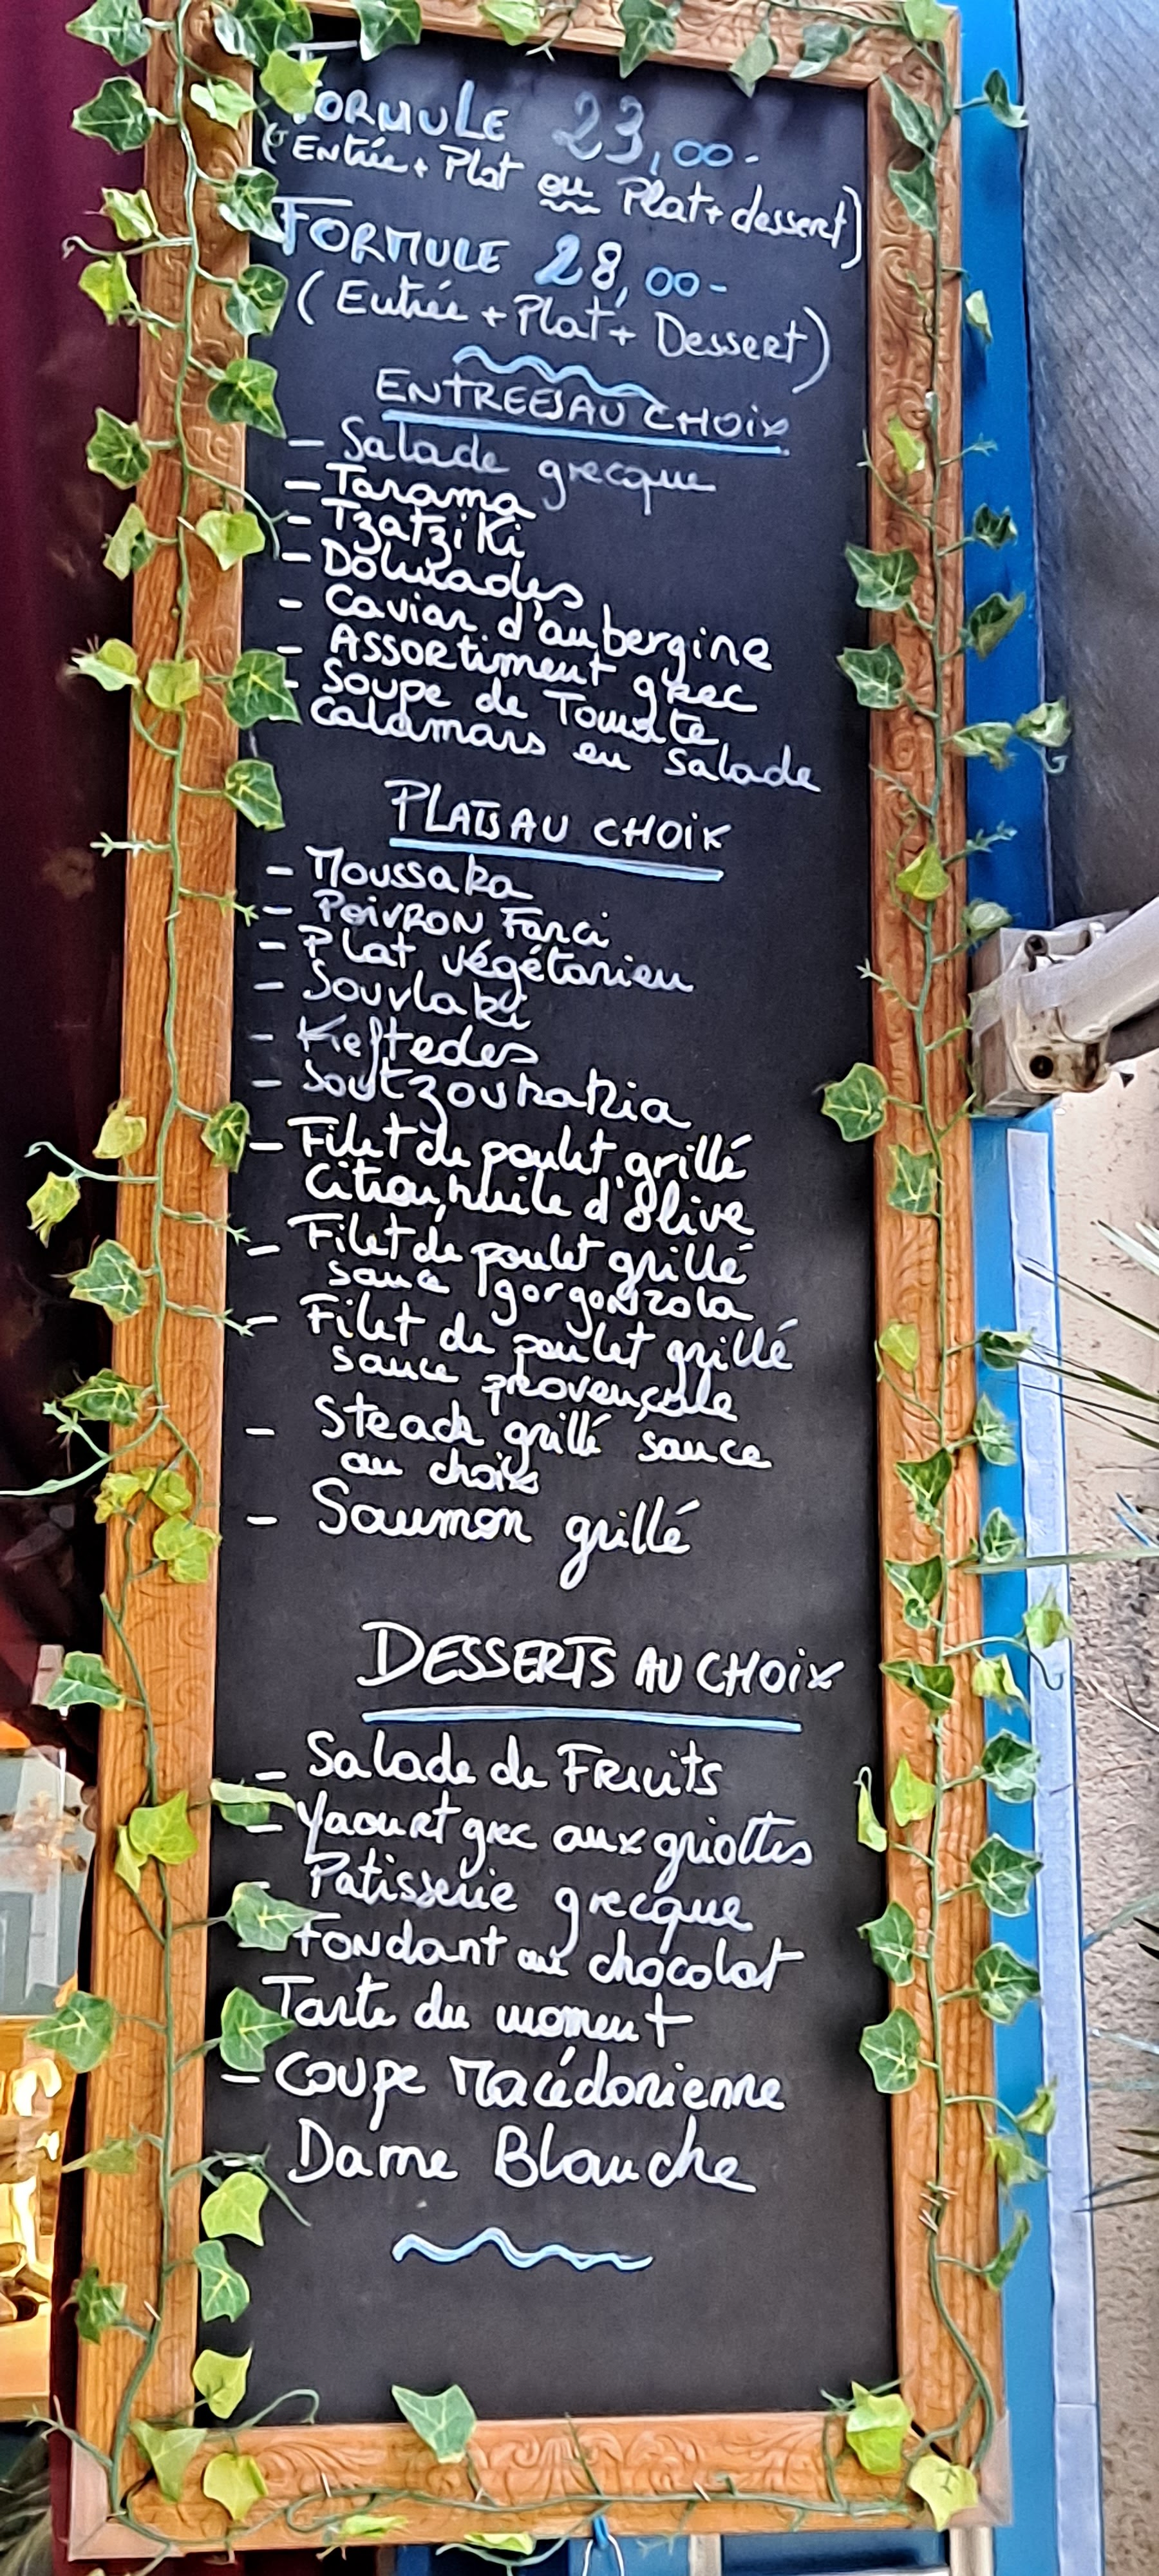 FORMULE 23,00-
(Entrée + Plat ou Plat + dessert)
FORMULE 28,00-
(Entrée + Plat + Dessert)
ENTREES AU CHOIX
- Salade grecque
- Tarama
- Tzatziki
- Dolmades
- Caviar d'aubergine
- Assortiment grec
- Soupe de Tomate
- Calamars en salade
PLATS AU CHOIX
- Moussaka
- POIVRON Farci
- Plat végétarien
- Souvlaki
- Keftedes
- Soutzoukakia
- Filet de poulet grillé
Citron, huile d'olive
- Filet de poulet grillé
sauce gorgonzola
- Filet de poulet grillé
sauce provençale
- Steack grillé sauce
au choix
- Saumon grillé
DESSERTS AU CHOIX
- Salade de Fruits
- Yaourt grec aux griottes
- Patisserie grecque
Fondant au chocolat
Tarte du moment
- Coupe Macédonienne
Dame Blanche